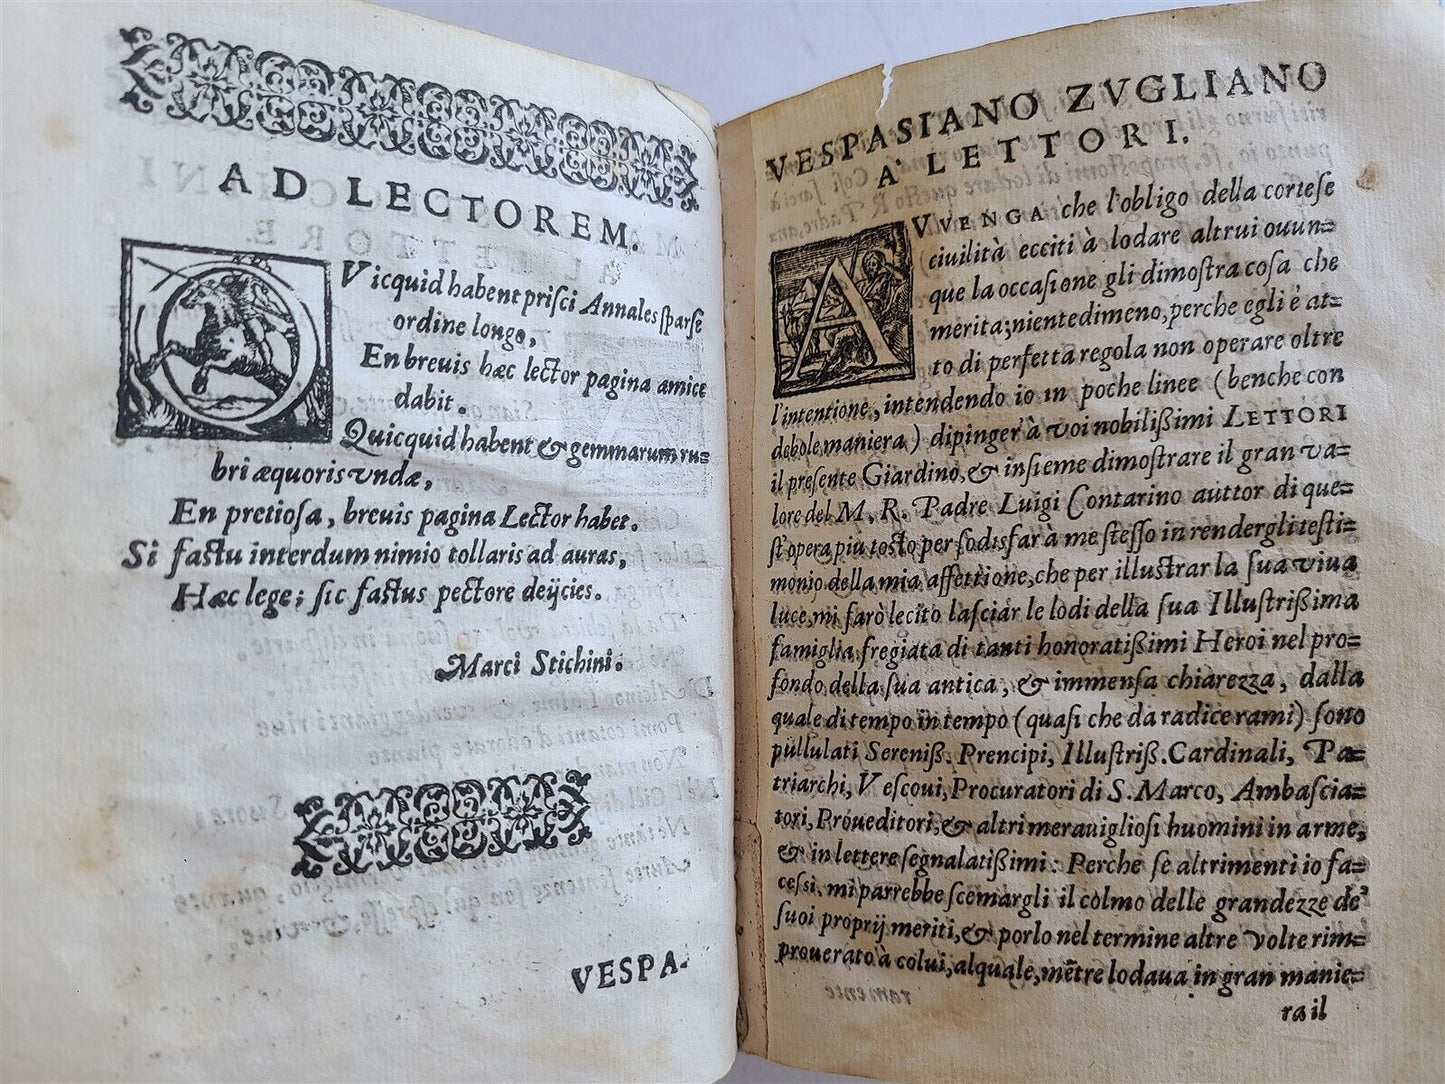 AD LECTOREM.
QVicquid habent prisci Annales sparse
ordine longo,
En breuis hæc lector pagina amice
dabit.
Quicquid habent & gemmarum ru=
bri æquoris vndæ,
En pretiosa, breuis pagina Lector habet.
Si fastu interdum nimio tollaris ad auras,
Hæc lege; sic fastus pectore deijcies.
Marci Stichini.
VESPA-
VESPASIANO ZVGLIANO
A' LETTORI.
AVVENGA che l'obligo della cortese
ciuilità ecciti à lodare altrui ouun=
que la occasione gli dimostra cosa che
merita; nientedimeno, perche egli è at=
to di perfetta regola non operare oltre
l'intentione, intendendo io in poche linee (benche con
debole maniera) dipinger à voi nobilißimi LETTORI
il presente Giardino, & insieme dimostrare il gran va=
lore del M. R. Padre Luigi Contarino auttor di que=
st'opera più tosto per sodisfar à me stesso in rendergli testi=
monio della mia affettione, che per illustrar la sua viua
luce, mi farò lecito lasciar le lodi della sua Illustrißima
famiglia fregiata di tanti honoratißimi Heroi nel pro=
fondo della sua antica, & immensa chiarezza, dalla
quale di tempo in tempo (quasi che da radice rami) sono
pullulati Sereniß. Prencipi, Illustriß. Cardinali, Pa=
triarchi, Vescoui, Procuratori di S. Marco, Ambascia=
tori, Proueditori, & altri merauigliosi huomini in arme,
& in lettere segnalatißimi: Perche se altrimenti io fa=
cessi, mi parrebbe scemargli il colmo delle grandezze de'
suoi proprij meriti, & porlo nel termine altre volte rim=
prouerato à colui, al quale, mẽtre lodaua in gran manie=
ra il